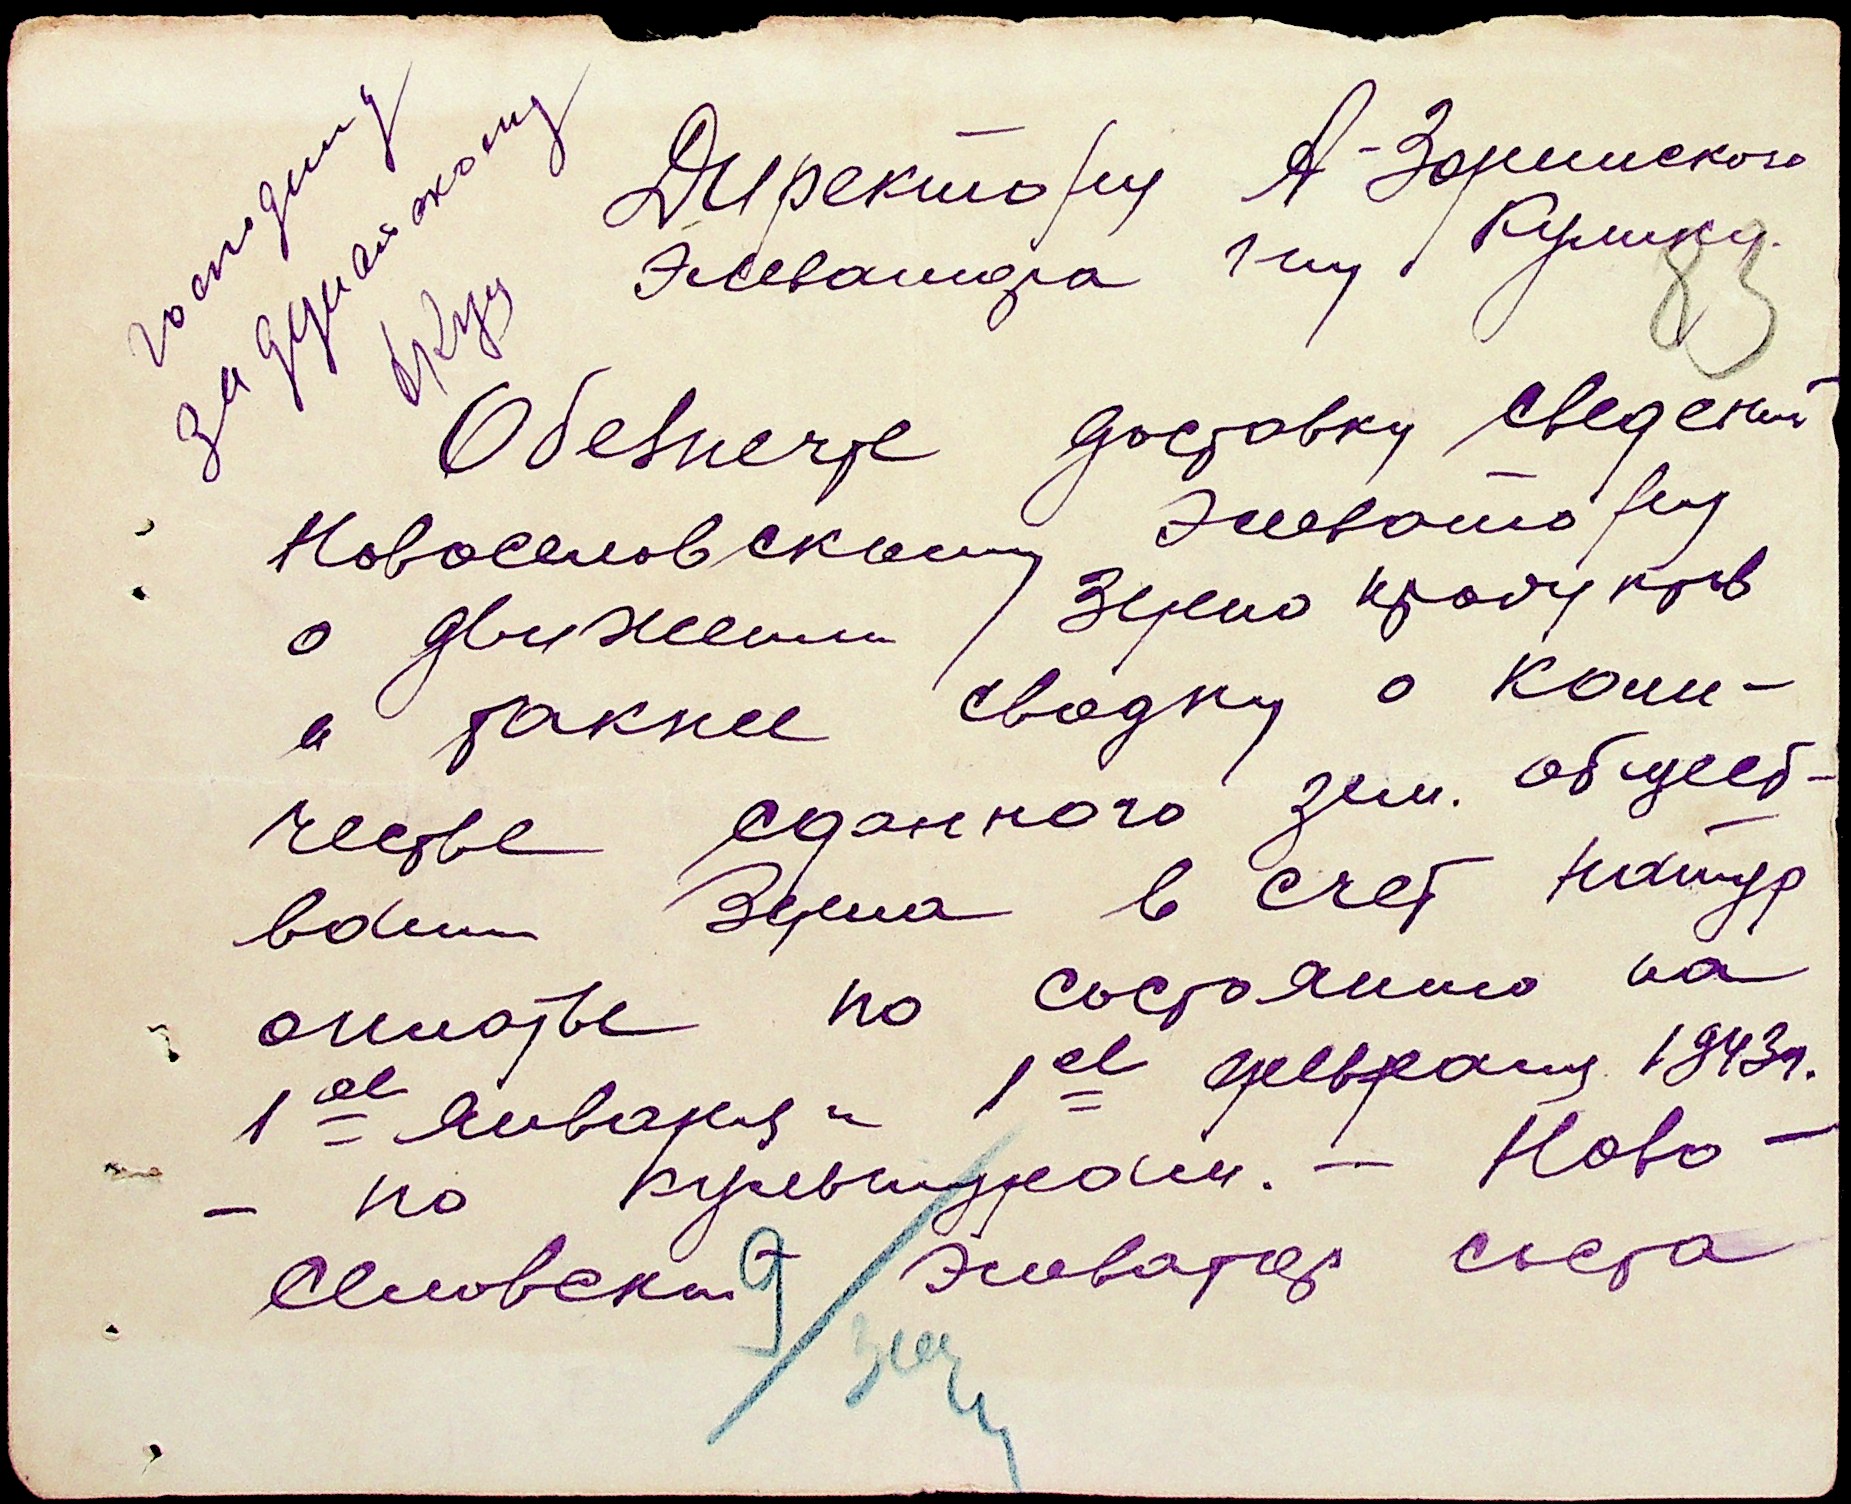 господину
Задунайскому
Директору А-Зоринского
Элеватора г-ну Кулику.
83
Обеспечте доставку сведений
Новоселовскому Элеватору
о движении Зерно продуктов
а также сводку о коли-
честве сданного зем. общест-
вами Зерна в счет натур
оплаты по состоянию на
1ое января и 1ое февраля 1943 г.
- по культурам. - Ново-
селовский Элеватор соста
9